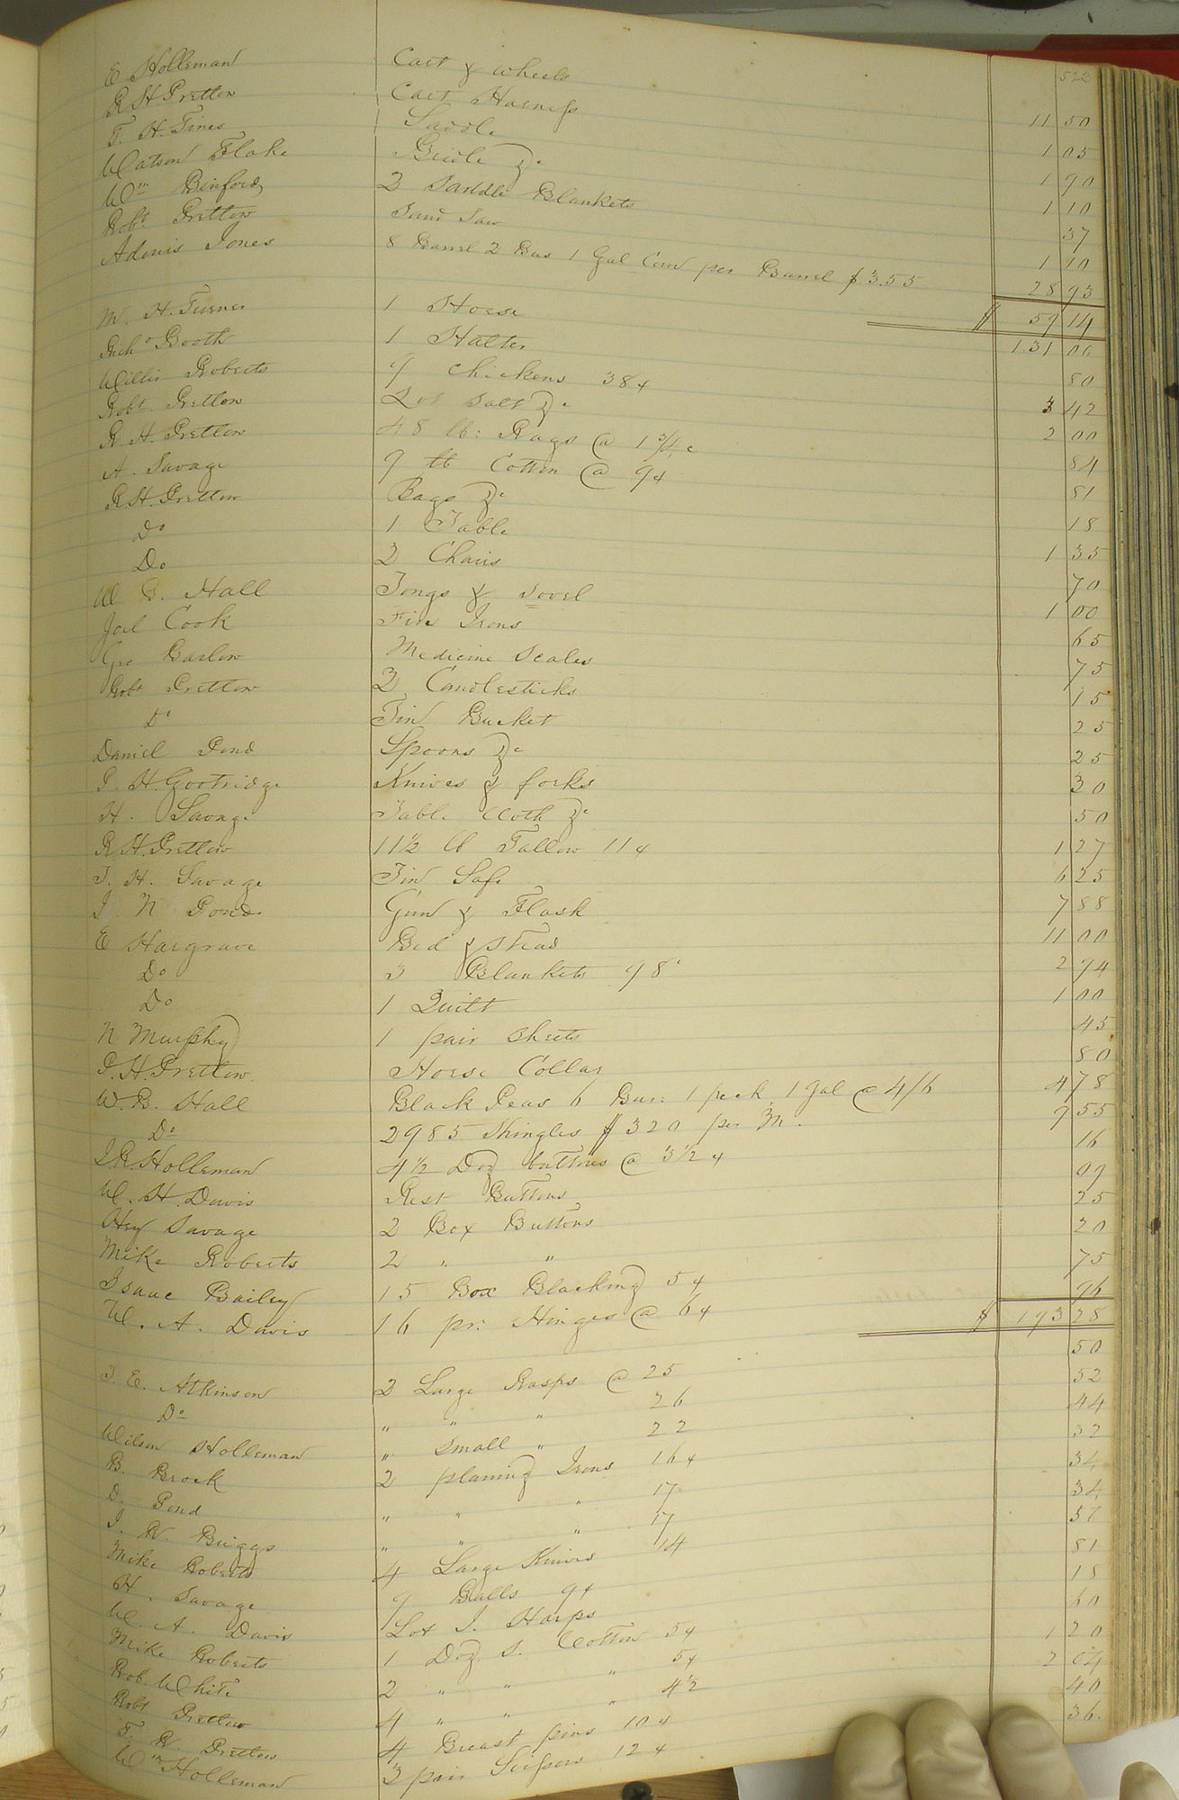 522
E Holleman Cart & wheels 11 50
R H Pretlow Cart Harness 1 05
T. H. Tines Saddle 1 90
Watson Flake Bridle &c 1 10
Wm Binford 2 Saddle Blankets 37
Robt Pretlow Hand Saw 1 10
Adonis Jones 8 Barrel 2 Bus 1 Gal Corn per Barrel $3.55 28 93
$ 59 14
M. H. Turner 1 Horse 131 06
Richd Booth 1 Halter 80
Willis Roberts 9 Chickens 38¢ 3 42
Robt Pretlow Lot Salt &c 2 00
R H. Pretlow 48 lb: Rags @ 1 3/4 c 84
A. Savage 9 lb Cotton @ 9¢ 81
R H. Pretlow Bags &c 18
Do 1 Table 1 35
Do 2 Chairs 70
W B. Hall Tongs & Sovel 1 00
Joel Cook Fire Irons 65
Geo Barlow Medicine Scales 75
Robt Pretlow 2 Candlesticks 15
Do Tin Bucket 25
Daniel Pond Spoons &c 25
P. H. Gootridge Knives & forks 30
H. Savage Table Cloth &c 50
R H. Pretlow 11½ lb Tallow 11¢ 1 27
T. H. Savage Tin Safe 6 25
J N Pond Gun & Flask 7 88
E Hargrave Bed & Stead 11 00
Do 3 Blankets 98c 2 94
Do 1 Quilt 1 00
N Murphy 1 pair Sheets 45
P. H. Pretlow Horse Collar 80
W. B. Hall Black Peas 6 Bus: 1 peck 1 gal @ 4/6 4 78
Do 2985 Shingles $3 20 per M. 9 55
J. R. Holleman 4½ Doz buttons @ 3½¢ 16
W. H. Davis Rest Buttons 09
Hey Savage 2 Box Buttons 25
Mike Roberts 2 " " 20
Isaac Bailey 15 Box Blacking 5¢ 75
W. A. Davis 16 pr: Hinges @ 6¢ 96
$ 193 28
T. E. Atkinson 2 Large Rasps @ 25 50
Do " " " 26 52
Wilson Holleman " Small " 22 44
B. Brock 2 planing Irons 16¢ 32
D. Pond " " " 17 34
J. R. Briggs " " " 17 34
Mike Roberts 4 Large Knives 14 56
H. Savage 9 Balls 9¢ 81
W. A. Davis Lot J. Harps 18
Mike Roberts 1 Doz S. Cotton 5¢ 60
Rob. White 2 " " " 5¢ 1 20
Robt Pretlow 4 " " " 4½
F. R. Pretlow 4 Breast pins 10¢ 40
Wm Holleman 3 pair Scissors 12¢ 36